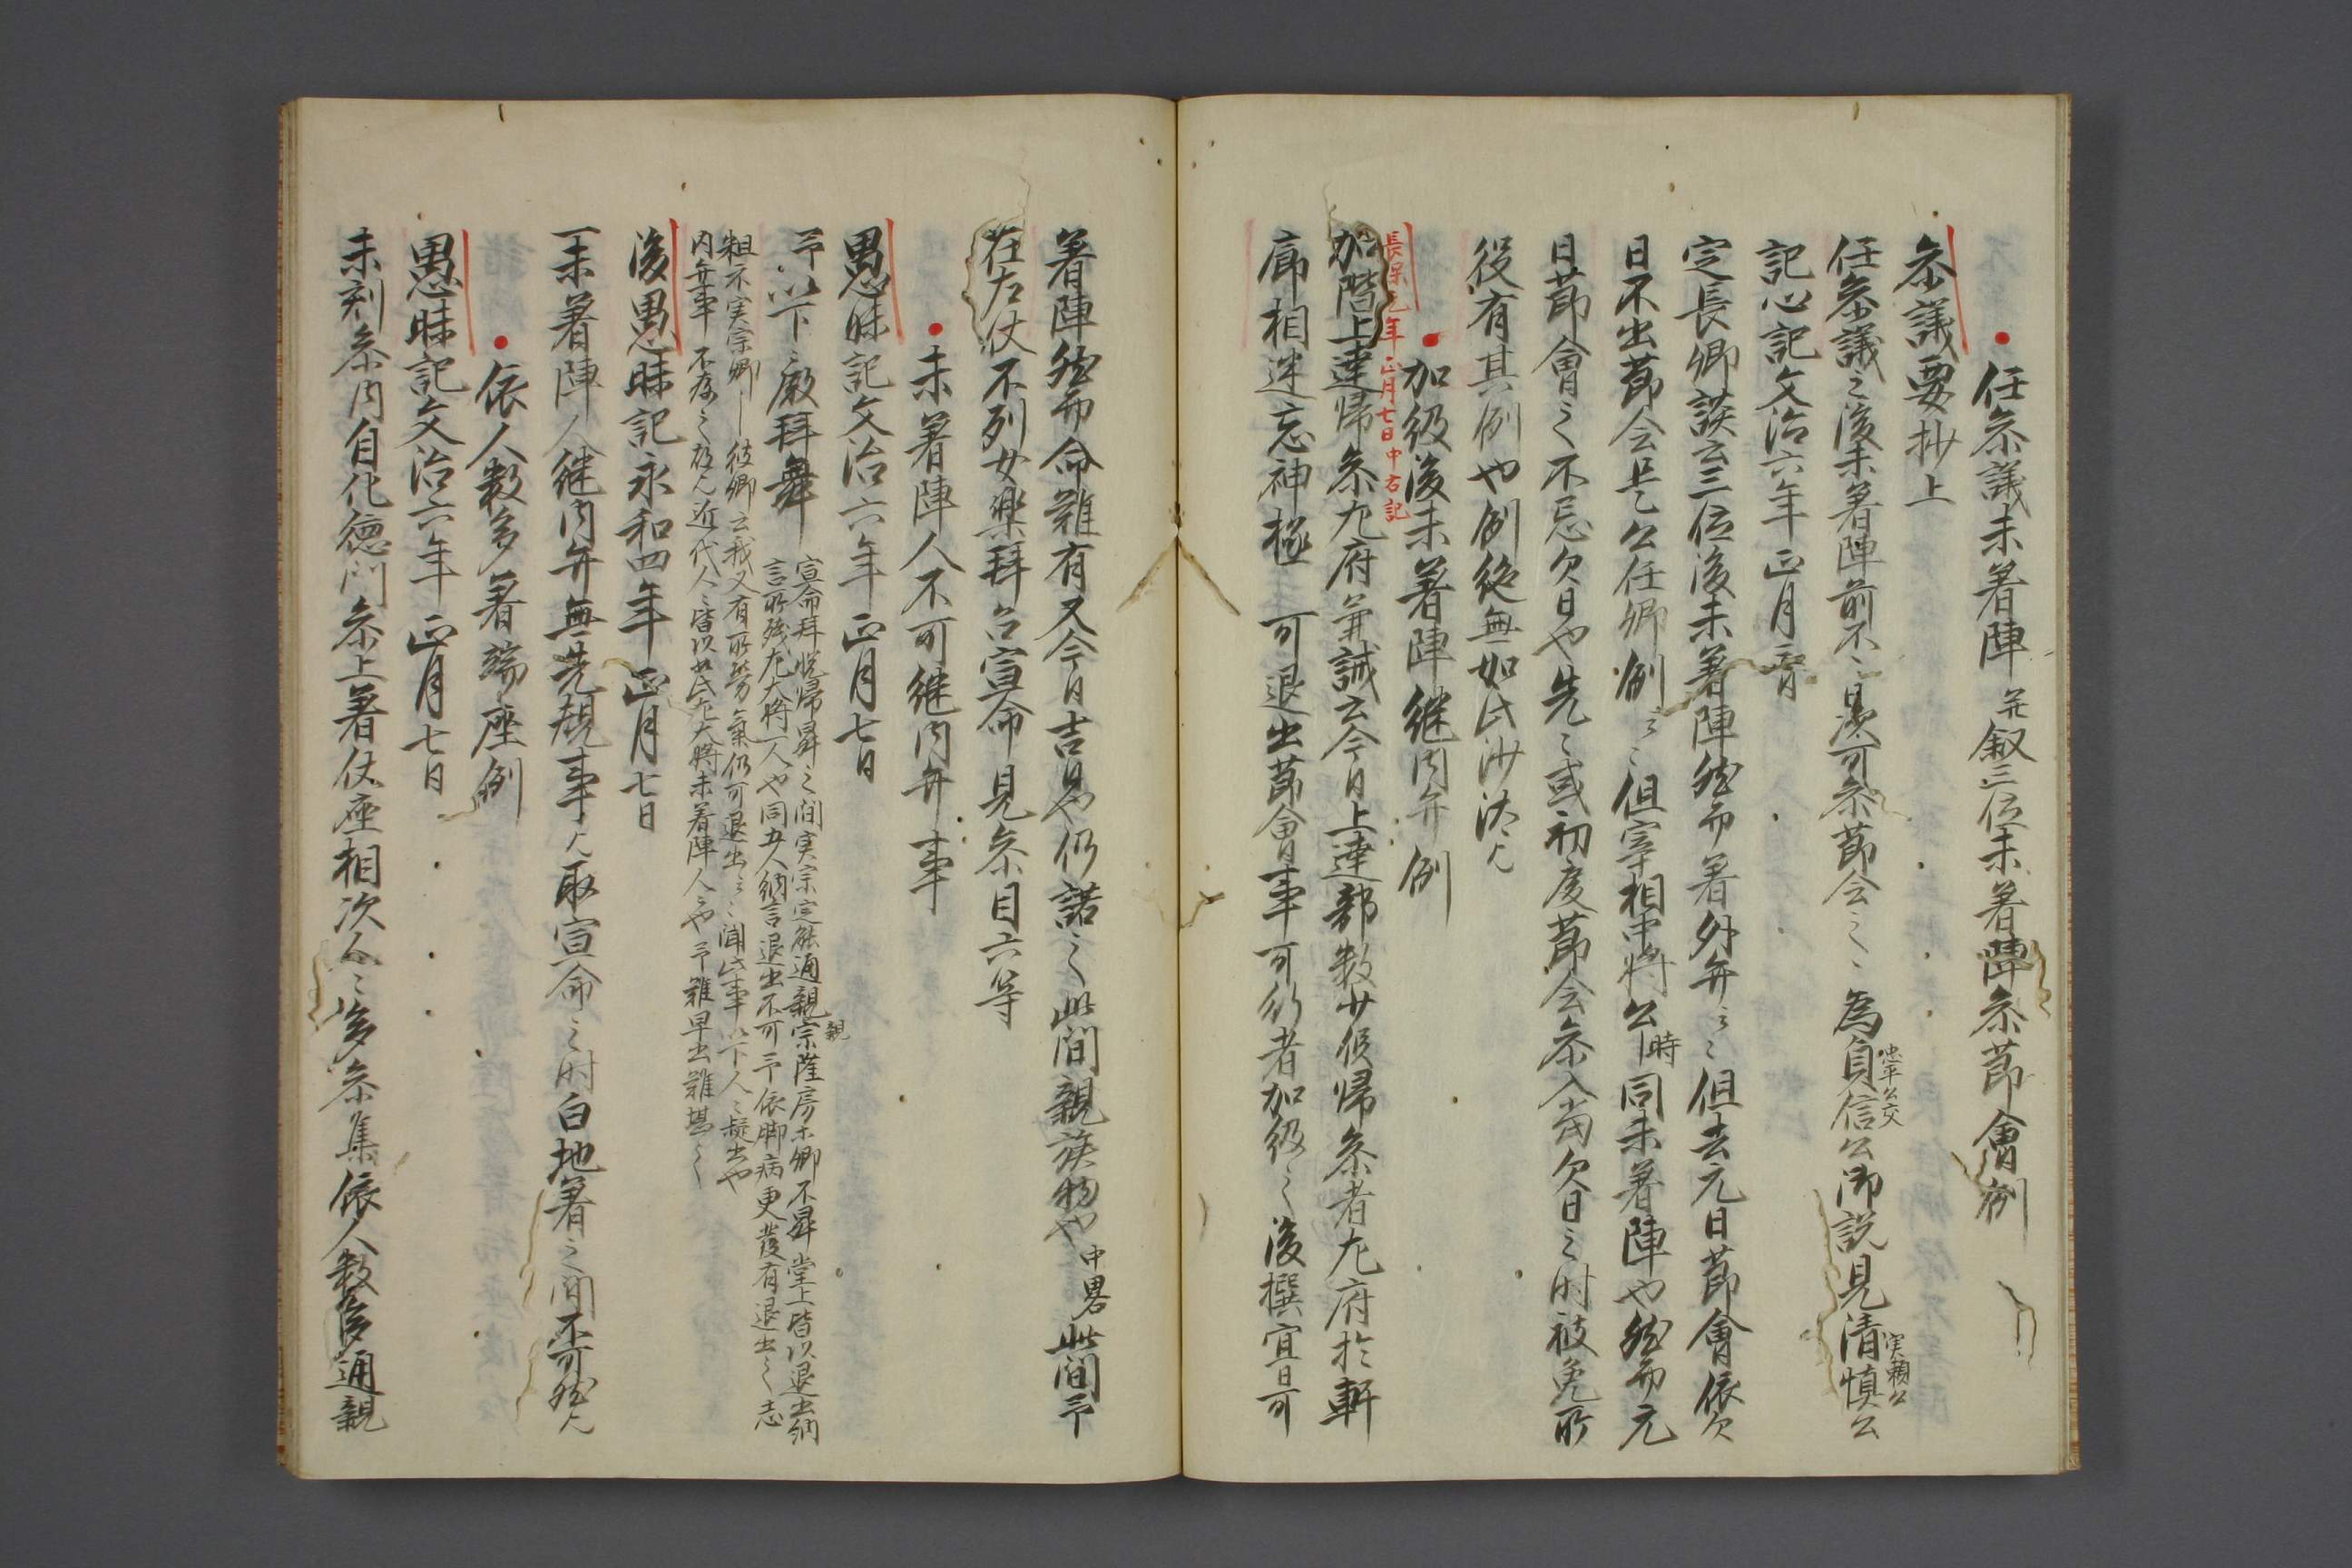 任参議未著陣并叙三位未著陣参節會例
参議要抄上
任参議之後未著陣前不謁可参節会云々為貞信公御説見清慎公
忠平公文
実頼公
記心記文治六年正月一日
定長卿談云三位後未著陣然而著外弁云々但去元日節會依欠
日不出節会是公任卿例云々但宰相中将公時同未著陣也然而元
日節會之不忌欠日也先々或初度節会参入当欠日之時被免所
役有其例也例絶無如此沙汰也
加級後未著陣継内弁例
長保元年正月七日中右記
加階上達帰参左府並誡云今日上達部数少候帰参者左府於軒
廊相迷忘神極 可退出節會事可行者加級之後撰宜日可
著陣然而命雖有又今日吉日也仍諾之此間親族拝也中畧此間予
在左仗不列女樂拝召宣命見参目六等
未著陣人不可継内弁事
愚昧記文治六年正月七日
予以下之殿拜舞
宣命拜脱帰昇之間実宗定能通親親宗隆房等卿不昇堂上皆以退出納
言所残左大将一人也同五人納言退出不可予依脚病更發有退出之志
粗示実宗卿彼卿云我又有所勞氣仍可退出云々聞此事以下人々競出也
内弁事不存之故也近代人皆以此左大将未着陣人也予雖早出雖堪之
後愚昧記永和四年正月七日
一未著陣人継内弁無先規事也取宣命之時白地著之間不可然也
依人数多著端座例
愚昧記文治六年正月七日
未刻参内自化徳門参上著仗座相次人々多参集依人数多通親